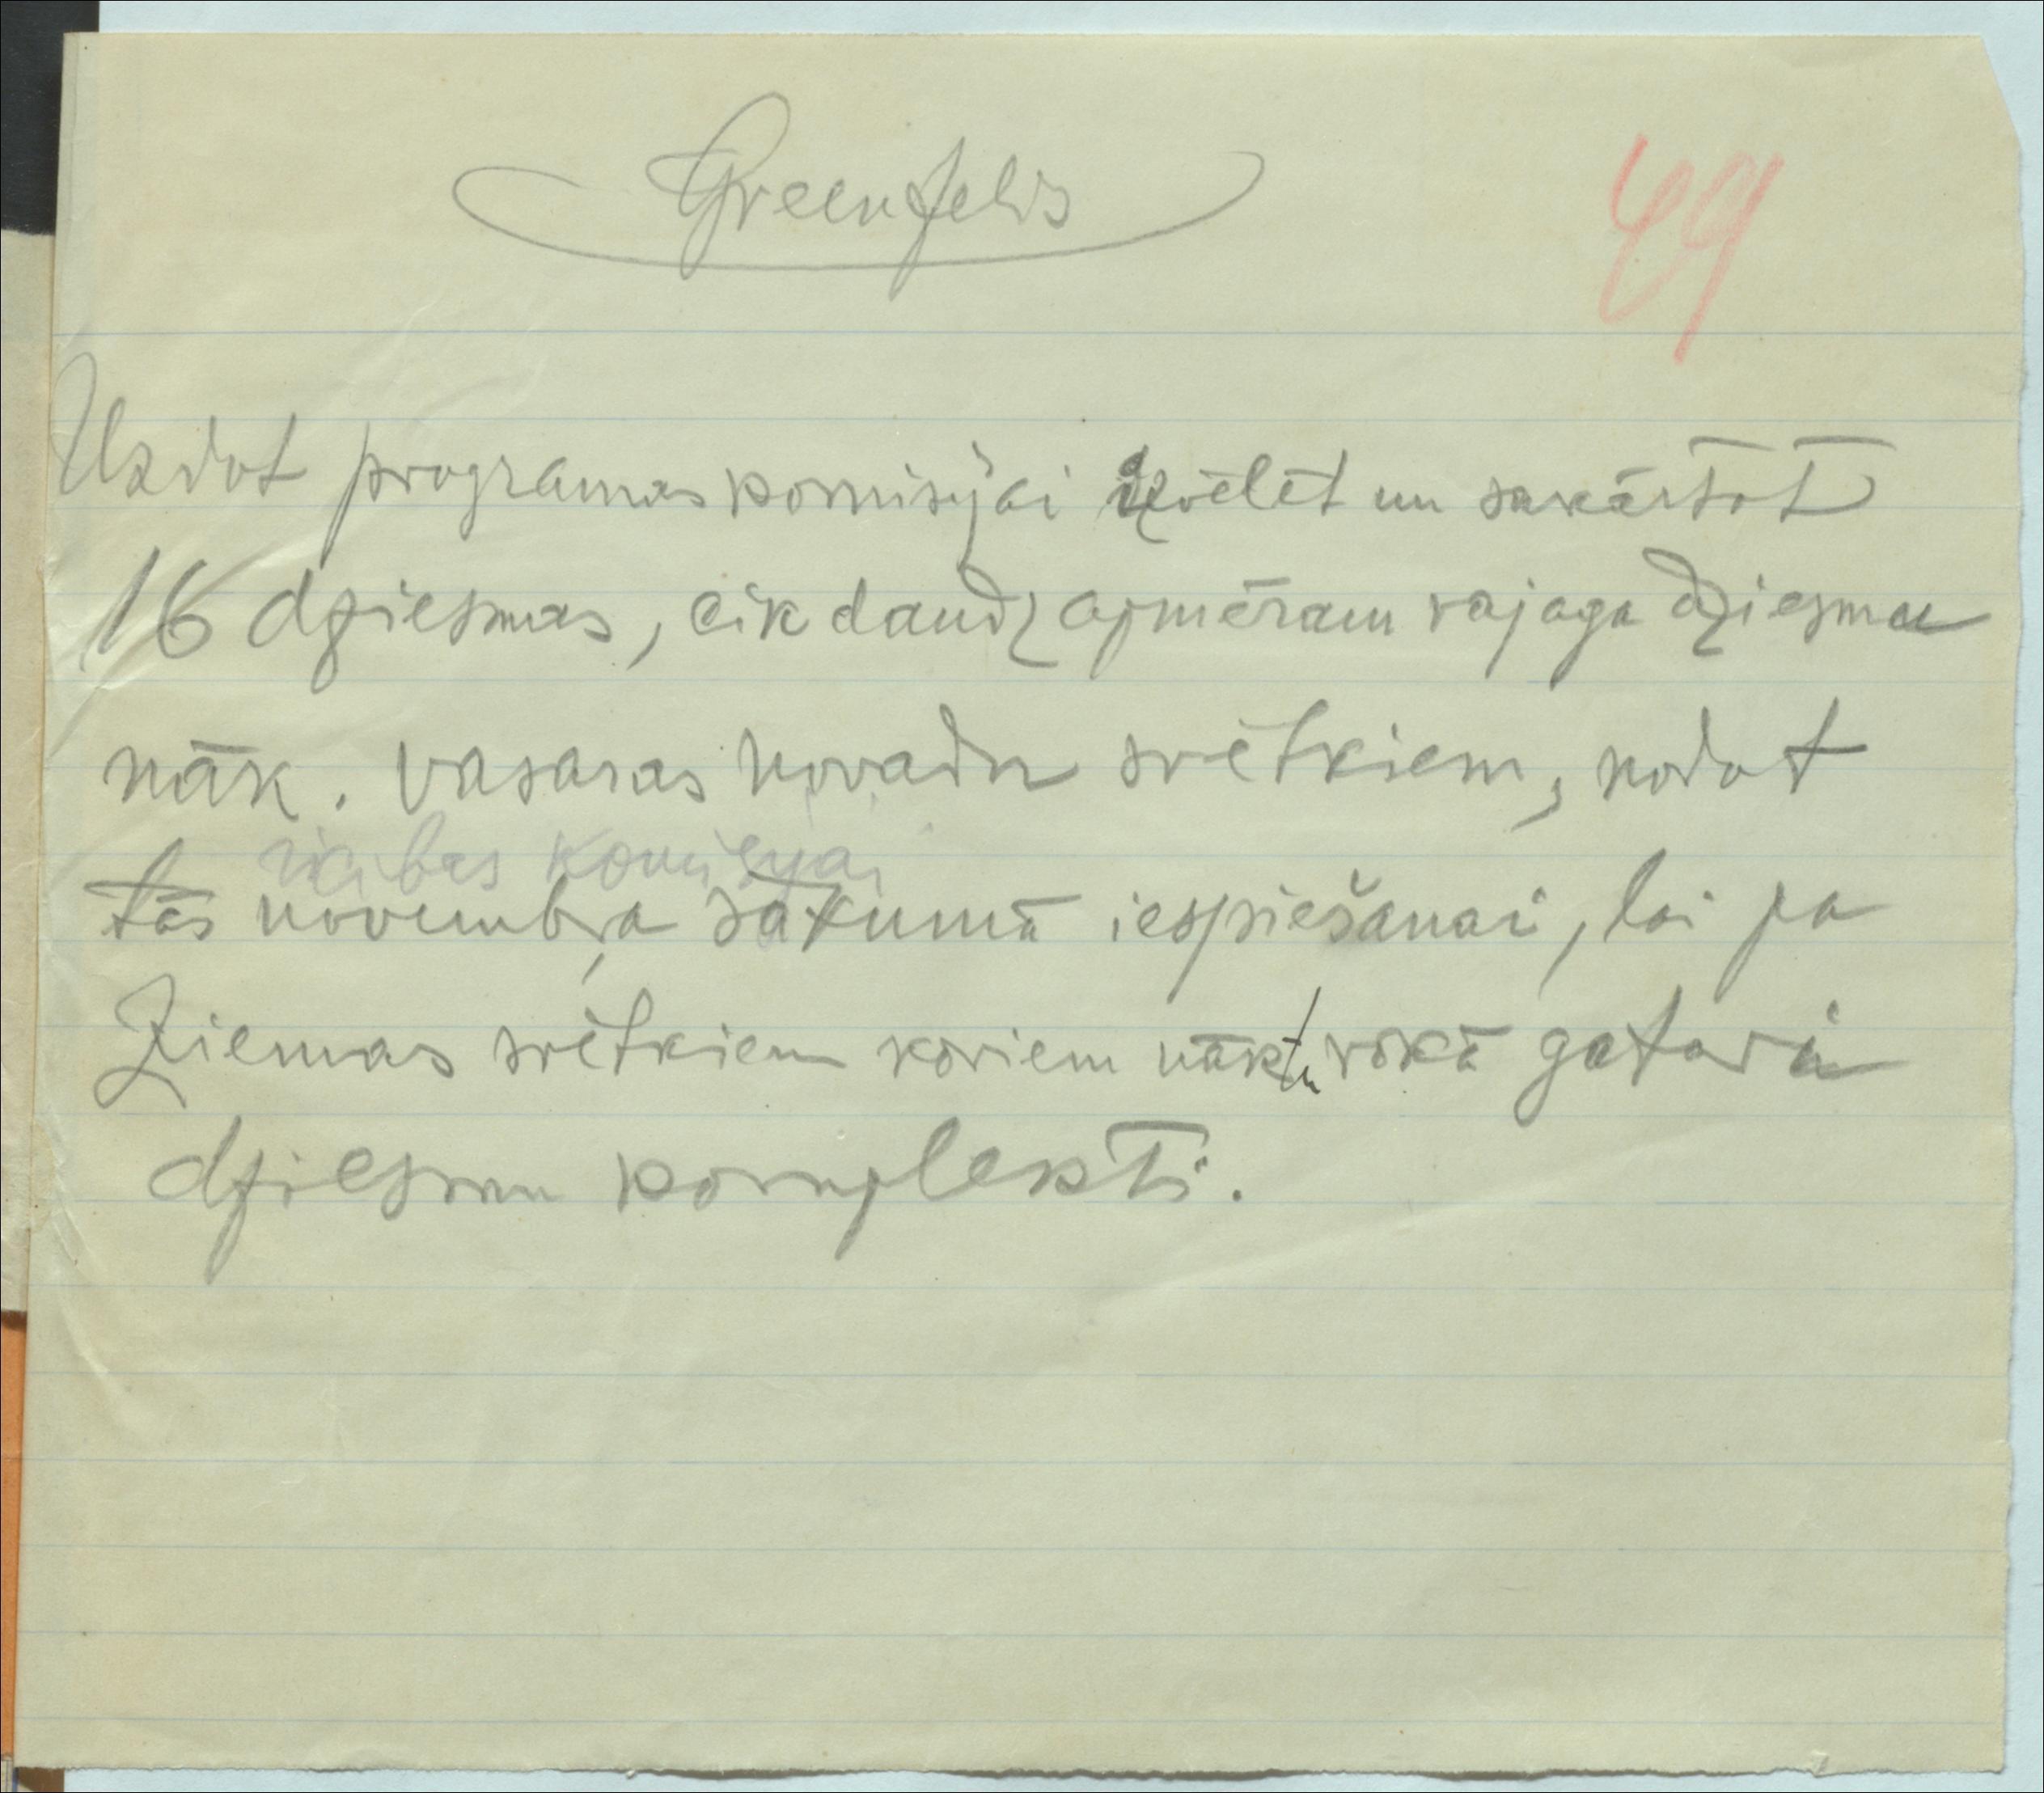 Greenfelds
49
Uzdot programas komisijai izvēlēt un sakārtot
16 dziesmas, cik daudz apmēram vajaga dziesmu
nāk. vasaras novadu svētkiem, nodot
rīcibas komisijai
tās novembŗa sākumā iespiešanai, lai pa
Ziemas svētkiem koriem nāktu rokā gatavi
dziesmu komplekti.